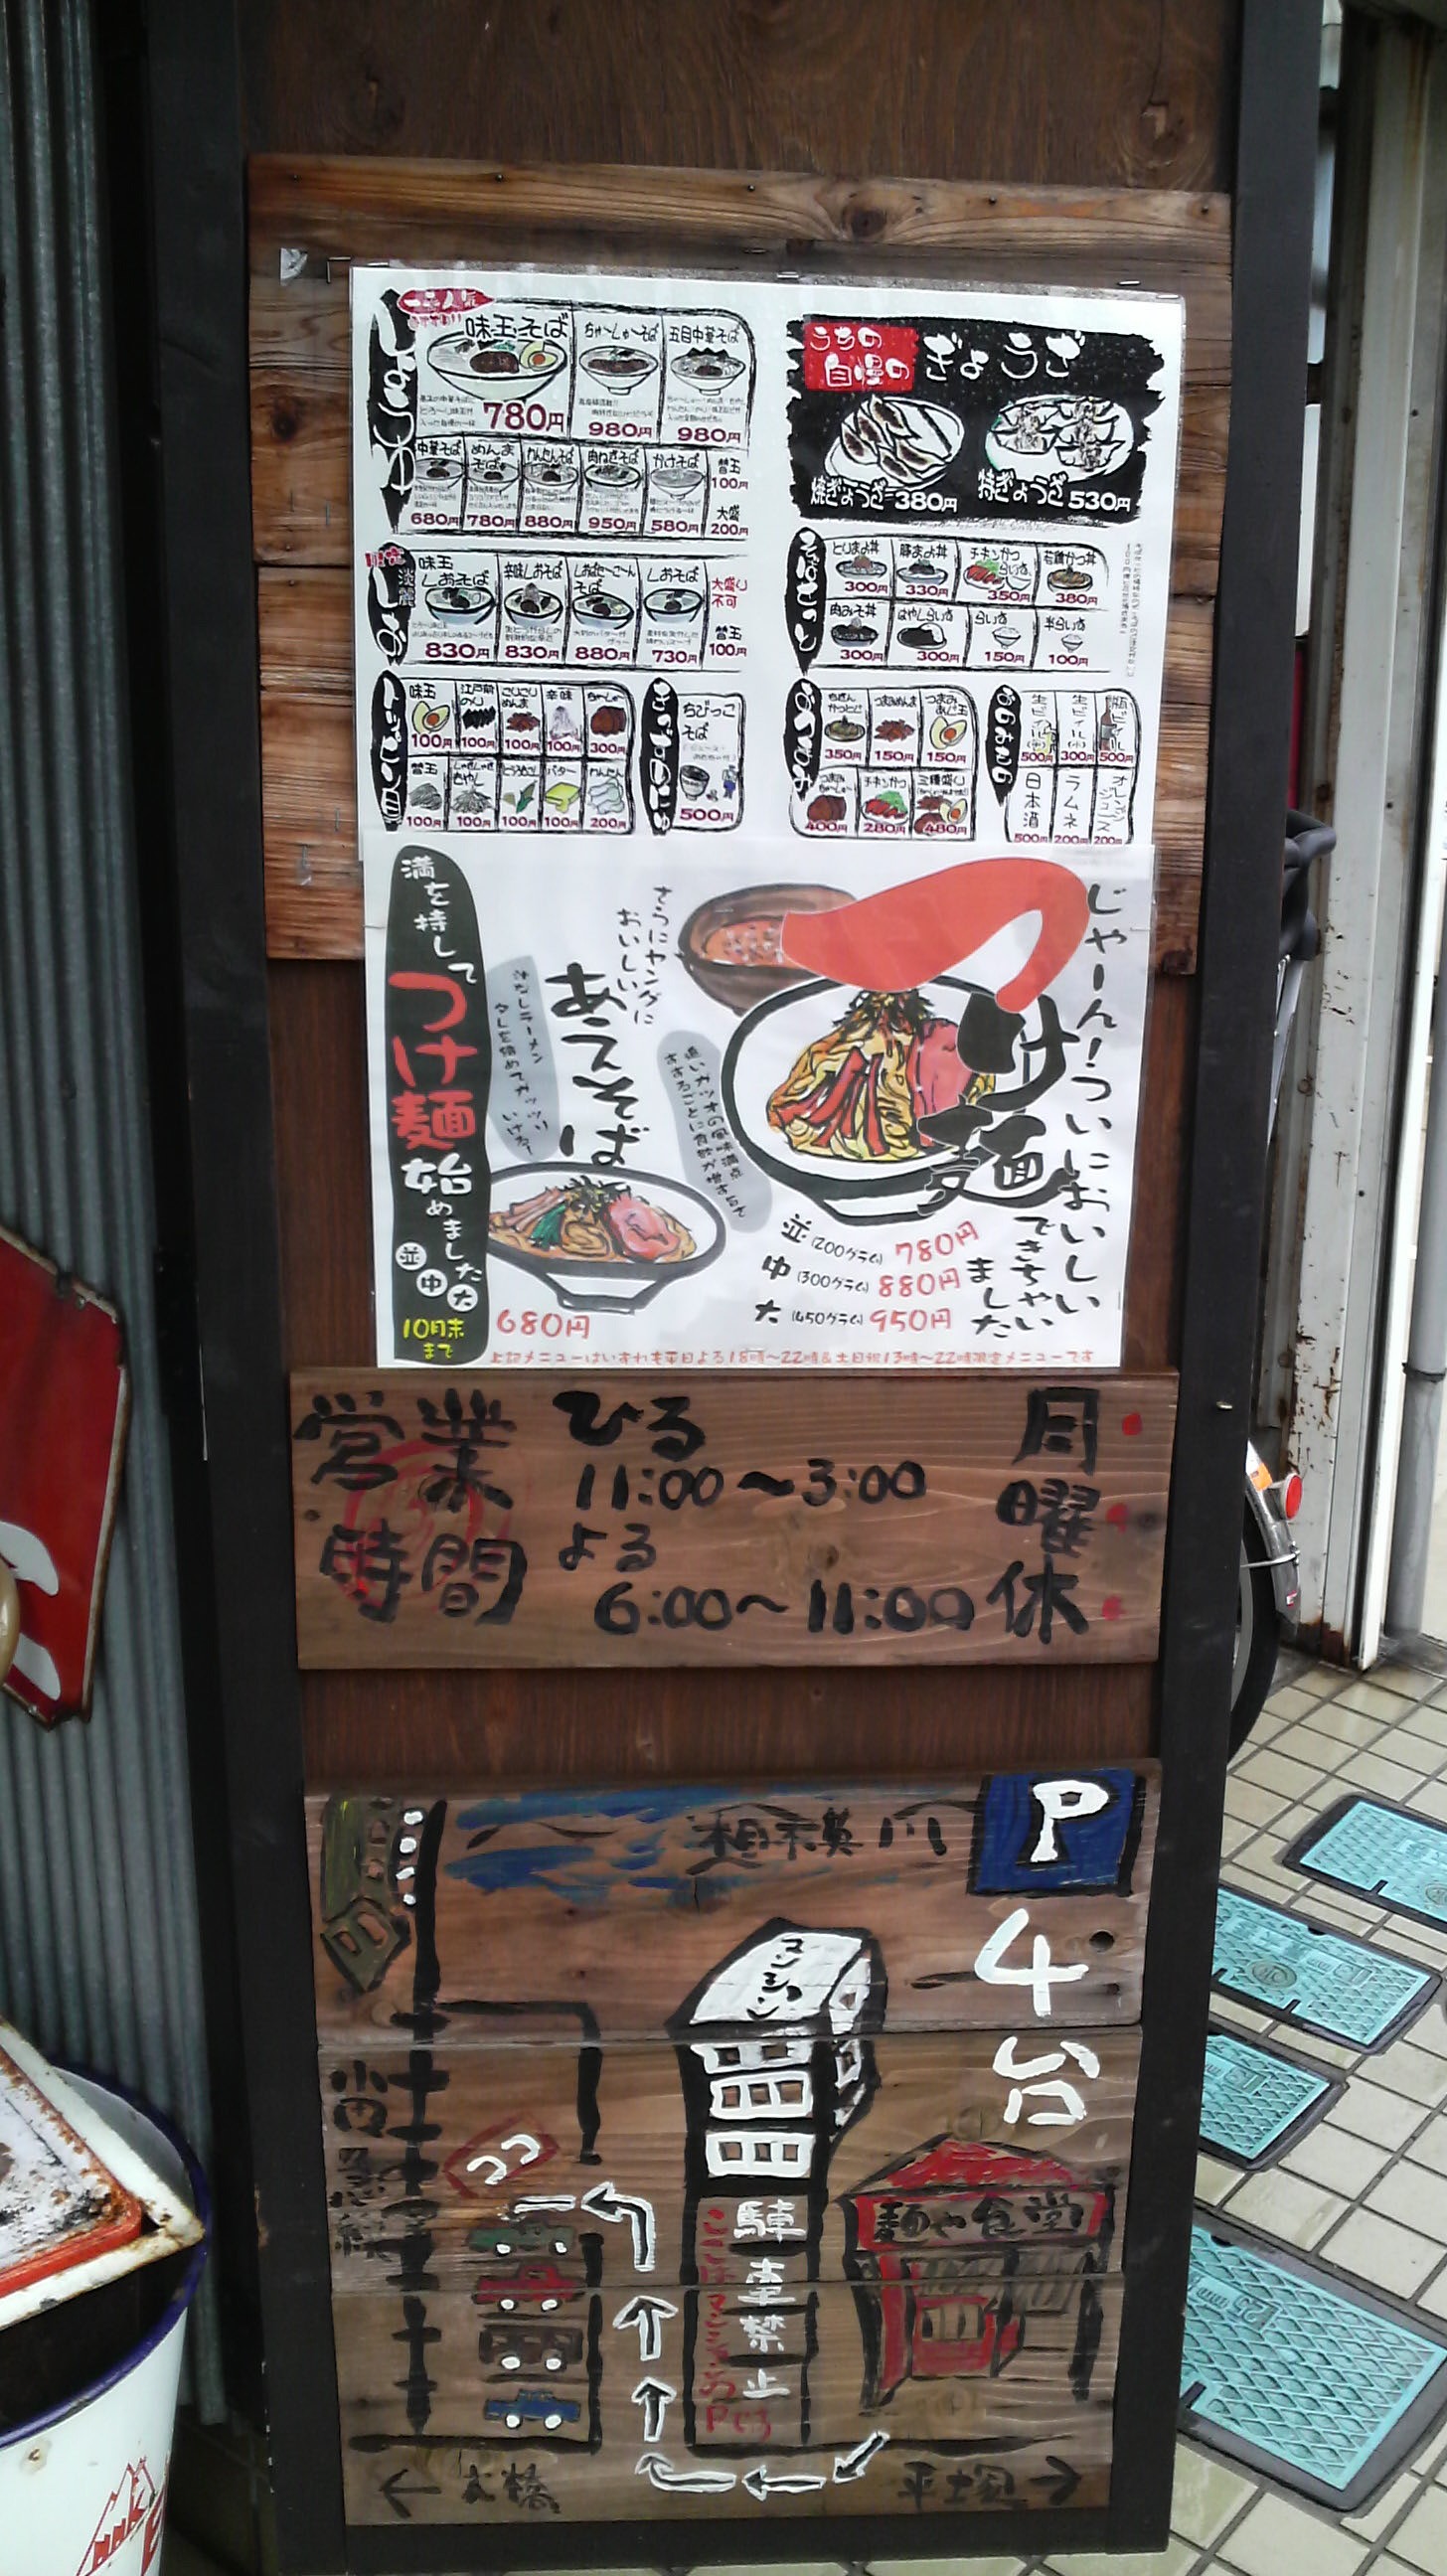 しょうゆ
味玉そば
780円
ちゃーしゅーそば
980円
五目中華そば
980円
中華そば
680円
めんま
そば
780円
わんたんそば
880円
肉ねぎそば
950円
かけそば
580円
替玉
100円
大盛
200円
しお
味玉
しおそば
830円
辛味しおそば
830円
880円
しおそば
730円
大盛り
不可
替玉
100円
トッピング
味玉
100円
江戸前
のり
100円
こりこり
めんま
100円
辛味
100円
ちゃーしゅー
300円
替玉
100円
しゃきしゃき
もやし
100円
100円
バター
100円
わんたん
200円
ちびっこ
そば
500円
うちの
自慢の
ぎょうざ
焼ぎょうざ 380円
特ぎょうざ 530円
ごはん
とりまよ丼
300円
豚まよ丼
330円
チキンかつ
らいす
350円
若鶏かつ丼
380円
肉みそ丼
300円
はやしらいす
300円
らいす
150円
半らいす
100円
おつまみ
350円
つまみめんま
150円
つまみ
あじ玉
150円
つまみ
ちゃーしゅー
400円
チキンかつ
280円
三種盛り
480円
おのみもの
生ビール(中)
500円
生ビール(小)
300円
瓶ビール
500円
日本酒
500円
ラムネ
200円
オレンジ
ジュース
200円
じゃーん!ついにおいしい
できちゃい
ました
つけ麺
並(200グラム) 780円
中(300グラム) 880円
大(450グラム) 950円
さらにヤングに
おいしい
あえそば
汁なしラーメン
タレを絡めてガッツリ
いける!
680円
満を持して
つけ麺
始めました
並中大
10月末
まで
上記メニューはいずれも平日よる18時〜22時&土日祝13時〜22時限定メニューです
営業
時間
ひる
11:00〜3:00
よる
6:00〜11:00
月曜休
相模川
P
4台
マンション
小田急線
ココ
駐車禁止
ここはマンションのPです
麺や食堂
← 本橋
平塚 →